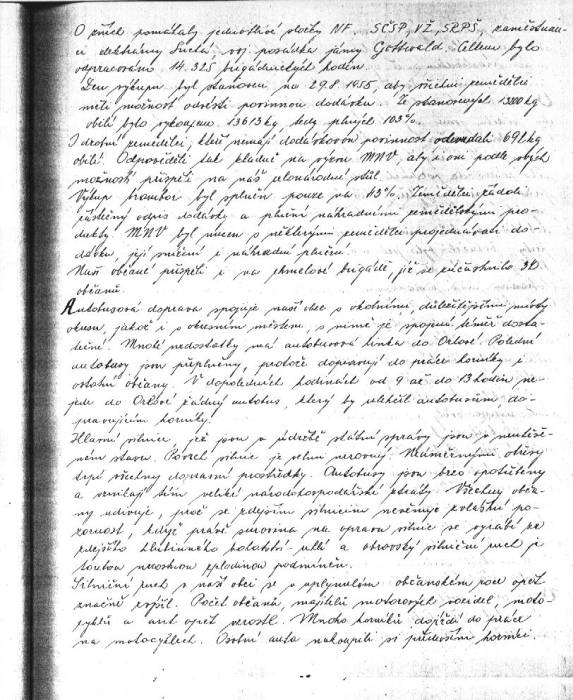 O žních pomáhaly jednotlivé složky NF, SČSP, VŽ, SRPŠ, zaměstnan-
ci elektrárny Suchá, voj. posádka jámy Gottwald. Celkem bylo
odpracováno 14.325 brigádnických hodin.
Den výkupu byl stanoven na 29.8 1955, aby všichni zemědělci
měli možnost odvésti povinnou dodávku. Ze stanovených 13200 kg
obilí bylo vykoupeno 13613 kg tedy plných 103%.
I drobní zemědělci, kteří nemají dodávkovou povinnost odevzdali 692 kg
obilí. Odpověděli tak kladně na výzvu MNV, aby i oni podle svých
možností přispěli na náš celonárodní stůl.
Výkup brambor byl splněn pouze na 43%. Zemědělci žádali
částečný odpis dodávky a plnění náhradními zemědělskými pro-
dukty. MNV byl nucen s některými zemědělci projednávati do-
dávku, její snížení i náhradní plnění.
Naši občané přispěli i na chmelové brigádě, jíž se zúčastnilo 30
občanů.
Autobusová doprava spojuje naši obec s okolními, důležitějšími místy
okresu, jakož i s okresním městem, s nímž je spojení téměř dosta-
tečné. Mnohé nedostatky má autobusová linka do Orlové. Polední
autobusy jsou přeplněny, protože dopravují do práce horníky i
ostatní občany. V dopoledních hodinách od 9 až do 13 hodin ne-
jede do Orlové žádný autobus, který by ulehčil autobusům do-
pravujícím horníky.
Hlavní silnice, jež jsou v údržbě státní správy jsou v neutěše-
ném stavu. Povrch silnice je velmi nerovný. Nadměrnými otřesy
trpí všechny dopravní prostředky. Autobusy jsou brzo opotřebeny
a vznikají tím veliké národohospodářské ztráty. Všechny obča-
ny udivuje, proč se zdejším silnicím nevěnuje zvláštní po-
zornost, když právě surovina na opravu silnic se vyrábí ze
zdejšího hlubinného bohatství - uhlí a obrovský silniční ruch je
touto
Silniční ruch v naší obci se v uplynulém občanském roce opět
značně zvýšil. Počet občanů, majitelů motorových vozidel, moto-
cyklů a aut opět vzrostl. Mnoho horníků dojíždí do práce
na motocyklech. Osobní auta nakoupili si především horníci.